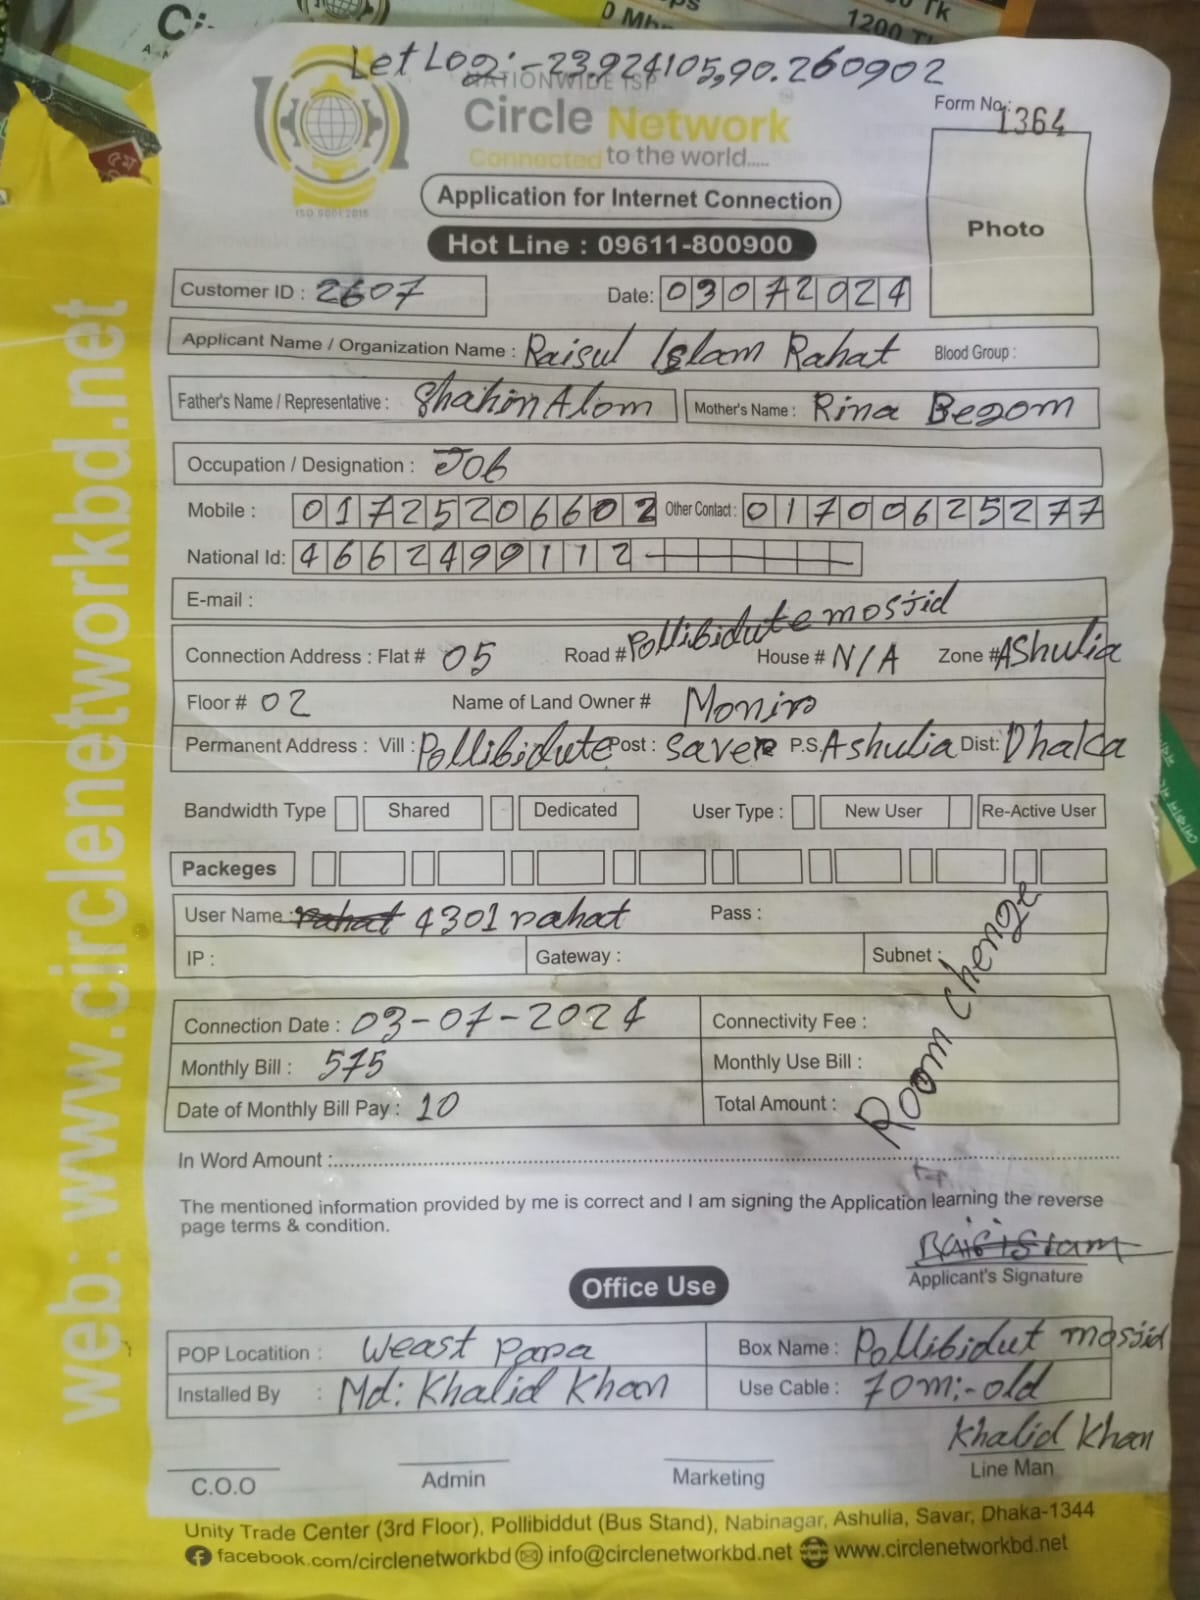 Let Log:-23.924105,90.260902
NATIONWIDE ISP
Circle Network
Connected to the world.....
ISO 9001:2015
Form No.: 1364
Application for Internet Connection
Photo
Hot Line : 09611-800900
Customer ID : 2607 Date: 03072024
Applicant Name / Organization Name : Raisul Islam Rahat Blood Group :
Father's Name / Representative : Shahin Alom Mother's Name : Rina Begom
Occupation / Designation : Job
Mobile : 01725206602 Other Contact : 01700625277
National Id: 4662499112
E-mail :
Connection Address : Flat # 05 Road # Pollibidute mosjid House # N/A Zone # AShulia
Floor # 02 Name of Land Owner # Monir
Permanent Address : Vill : Pollibidute Post : Saver P.S. Ashulia Dist: Dhaka
Bandwidth Type Shared Dedicated User Type : New User Re-Active User
Packeges
User Name : rahat 4301rahat Pass :
IP : Gateway : Subnet :
Room Chenge
Connection Date : 03-07-2024 Connectivity Fee :
Monthly Bill : 575 Monthly Use Bill :
Date of Monthly Bill Pay : 10 Total Amount :
In Word Amount :
The mentioned information provided by me is correct and I am signing the Application learning the reverse
page terms & condition.
Applicant's Signature
Office Use
POP Locatition : Weast Para Box Name : Pollibidut mosjid
Installed By : Md: Khalid Khan Use Cable : 70m:-old
Khalid Khan
C.O.O Admin Marketing Line Man
Unity Trade Center (3rd Floor), Pollibiddut (Bus Stand), Nabinagar, Ashulia, Savar, Dhaka-1344
facebook.com/circlenetworkbd info@circlenetworkbd.net www.circlenetworkbd.net
web: www.circlenetworkbd.net
1200